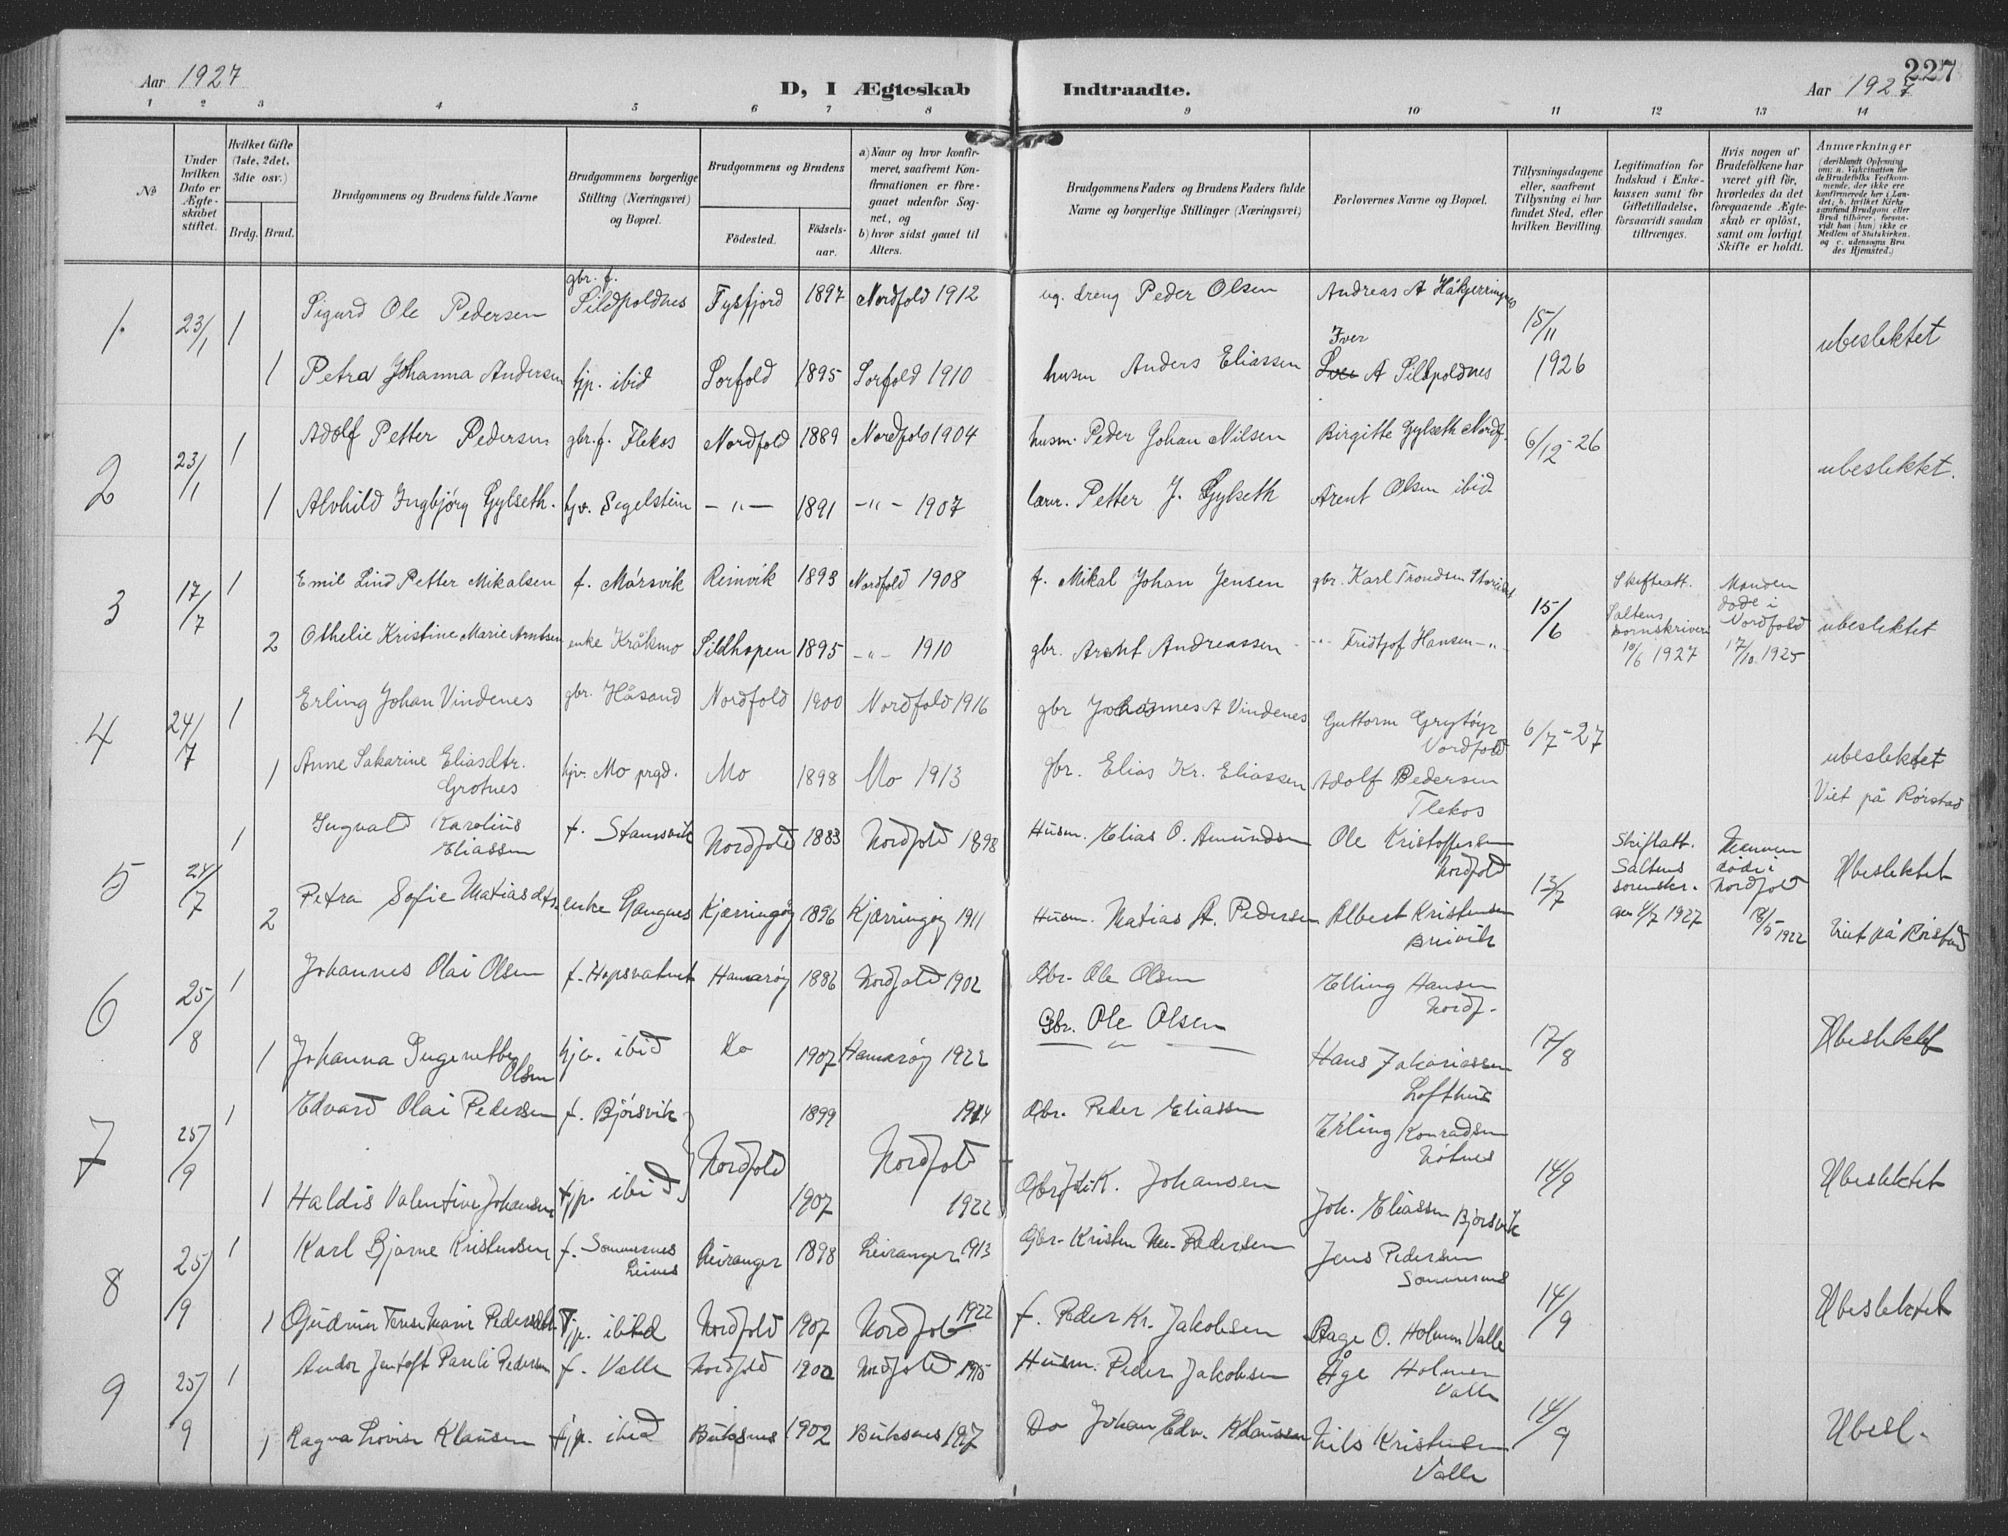 Aar 1927
D, I Ægteskab
Indtraadte.
227
Aar 1927
1 2 3 4 5 6 7 8 9 10 11 12 13 14
No
Under hvilken Dato er Ægteskabet stiftet.
Hvilket Gifte (1ste, 2det, 3die osv.)
Brdg. Brud.
Brudgommens og Brudens fulde Navne
Brudgommens borgerlige Stilling (Næringsvei) og Bopæl.
Brudgommens og Brudens
Födested. Födselsaar.
a) Naar og hvor konfirmeret, saafremt Konfirmationen er foregaaet udenfor Sognet, og
b) hvor sidst gaaet til Alters.
Brudgommens Faders og Brudens Faders fulde Navne og borgerlige Stillinger (Næringsvei)
Forlovernes Navne og Bopæl.
Tillysningsdagene eller, saafremt Tillysning ei har fundet Sted, efter hvilken Bevilling.
Legitimation for Indskud i Enkekassen samt for Giftetilladelse, forsaavidt saadan tiltrænges.
Hvis nogen af Brudefolkene har været gift för, hvorledes da det foregaaende Ægteskab er oplöst, samt om lovligt Skifte er holdt.
Anmærkninger (deriblandt Oplysning om: a. Vakcination for de Brudefolks Vedkommende, der ikke ere konfirmerede her i Landet; b. hvilket Kirkesamfund Brudgom eller Brud tilhörer, forsaavidt han (hun) ikke er Medlem af Statskirken, og c. udensogns Brudes Hjemsted.)
1. 23/1 1 Sigurd Ole Pedersen gbr. f. Sildpoldnes Tysfjord 1897 Nordfold 1912 ug. dreng Peder Olsen Andreas A Håkjerringnes 15/11 ubeslektet
1 Petra Johanna Andersen hjp. ibid Sørfold 1895 Sørfold 1910 husm Anders Eliassen Iver A Sildpoldnes 1926
2 23/1 1 Adolf Petter Pedersen gbr. f. Flekos Nordfold 1889 Nordfold 1904 husm. Peder Johan Nilsen Birgitte Gylseth Nordf. 6/12-26 ubeslektet.
1 Alvhild Ingbjørg Gylseth. hjv. Segelstein -"- 1891 -"- 1907 lærer. Petter J. Gylseth Arent Olsen ibid
3 17/7 1 Emil Lind Petter Mikalsen f. Mørsvik Reinvik 1893 Nordfold 1908 f. Mikal Johan Jensen gbr. Karl Trondsen 15/6 Skifteatt. Saltens sorenskriveri 10/6 1927 Manden døde i Nordfold 17/10 1925 ubeslektet
2 Othelie Kristine Marie Arntsen enke Kråkmo Sildhopen 1895 -"- 1910 gbr. Arnt Andreassen -"- Fridtjof Hansen -"-
4 24/7 1 Erling Johan Vindenes gbr. Håsand Nordfold 1900 Nordfold 1916 gbr Johannes A Vindenes Guttorm Grytøyr Nordfold 6/7-27
1 Anne Sakarine Eliasdtr. Grotnes hjv. Mo prgd. Mo 1898 Mo 1913 gbr. Elias Kr. Eliassen Adolf Pedersen Flekos ubeslektet Viet på Rørstad
5 24/7 1 Ingvald Karolius Eliassen f. Stamsvik Nordfold 1883 Nordfold 1898 Husm. Elias O. Amundsen Ole Kristoffersen Nordfold 13/7 Skiftatt. Saltens sorenskr. 4/7 1927 døde i Nordfold 18/5 1922 Ubeslektet
2 Petra Sofie Matiasdtr enke Gangnes Kjærringøy 1896 Kjærringøy 1911 Husm. Matias A. Pedersen Albert Kristensen Brivik Viet på Rørstad
6 25/8 1 Johannes Olai Olsen f. Hopsvatnet Hamarøy 1886 Nordfold 1902 Gbr. Ole Olsen Elling Hansen Nordf. 17/8
1 Johanna Ingenetbe Olsen hjv. ibid Do 1907 Hamarøy 1922 Gbr. Ole Olsen -"- Hans Jakariassen Lofthus Ubeslektet
7 25/9 1 Edvard Olai Pedersen f. Bjørsvik Nordfold 1899 Nordfold 1914 Gbr. Peder Eliassen Erling Konradsen Nøtnes 14/9 Ubeslektet
1 Haldis Valentine Johansen hjp. ibid 1907 1922 Gbr K. Johansen Joh. Eliassen Bjørsvik
8 25/9 1 Karl Bjarne Kristensen f. Sommernes Leines Leiranger 1898 Leiranger 1913 Gbr. Kristen Pedersen Jens Pedersen Sommernes 14/9 Ubeslektet
1 Gudrun Terese Marie Pedersdtr hjp. ibid Nordfold 1907 Nordfold 1922 f. Peder Kr. Jakobsen Aage O. Holmen Valle
9 25/9 1 Andor Jentoft Pareli Pedersen f. Valle Nordfold 1900 Nordfold 1915 Husm. Peder Jakobsen Åge Holmen Valle 14/9 Ubesl.
1 Ragna Lovise Klausen hjp. ibid Buksnes 1902 Buksnes 1917 Do Johan Edv. Klaussen Nils Kristensen Valle